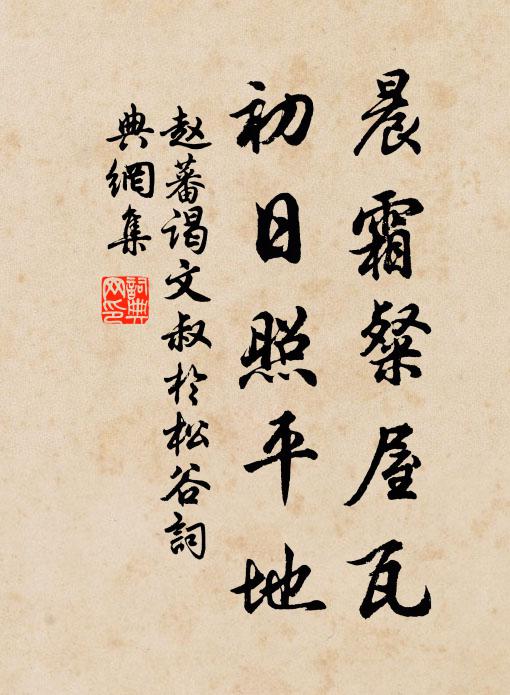 晨霜粲屋瓦
初日照平地
赵蕃谒文叔於松谷詞
典網集
詞典
网印